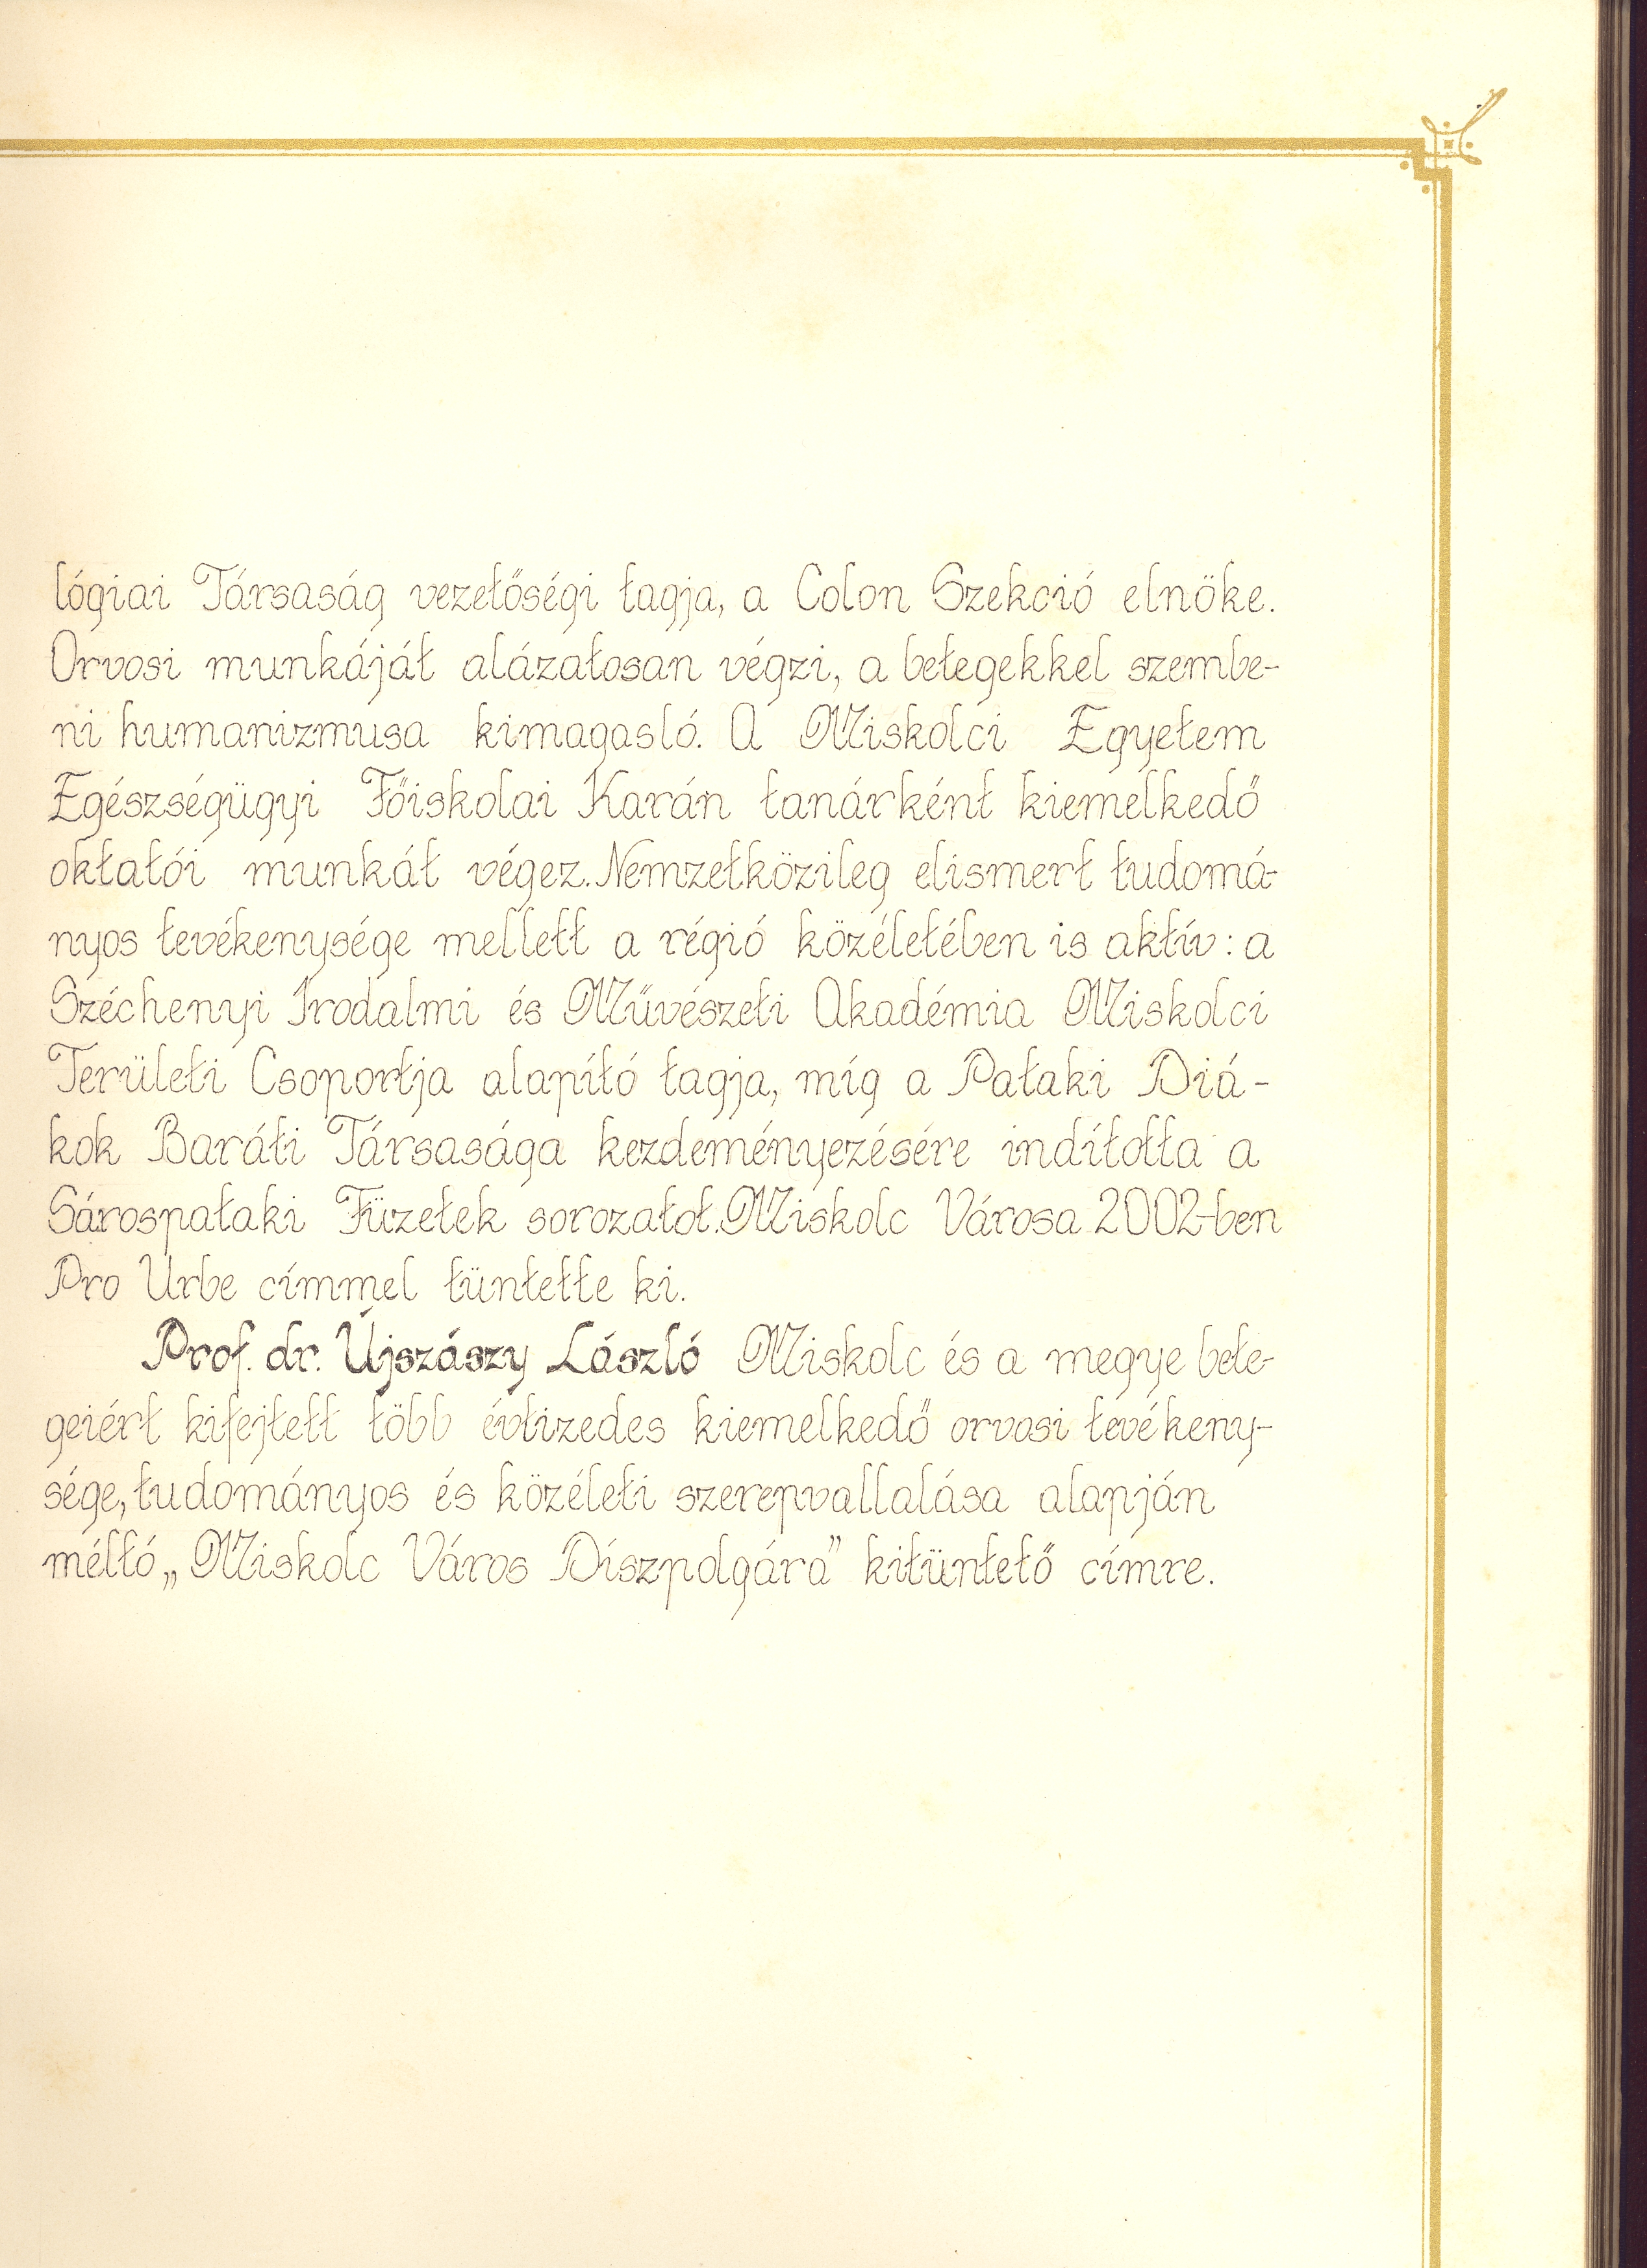 lógiai Társaság vezetőségi tagja, a Colon Szekció elnöke.
Orvosi munkáját alázatosan végzi, a betegekkel szembe-
ni humanizmusa kimagasló. A Miskolci Egyetem
Egészségügyi Főiskolai Karán tanárként kiemelkedő
oktatói munkát végez. Nemzetközileg elismert tudomá-
nyos tevékenysége mellett a régió közéletében is aktív: a
Széchenyi Irodalmi és Művészeti Akadémia Miskolci
Területi Csoportja alapító tagja, míg a Pataki Diá-
kok Baráti Társasága kezdeményezésére indította a
Sárospataki Füzetek sorozatot. Miskolc Városa 2002-ben
Pro Urbe címmel tüntette ki.
Prof. dr. Újszászy László Miskolc és a megye bete-
geiért kifejtett több évtizedes kiemelkedő orvosi tevékeny-
sége, tudományos és közéleti szerepvallalása alapján
méltó „Miskolc Város Díszpolgára” kitüntető címre.